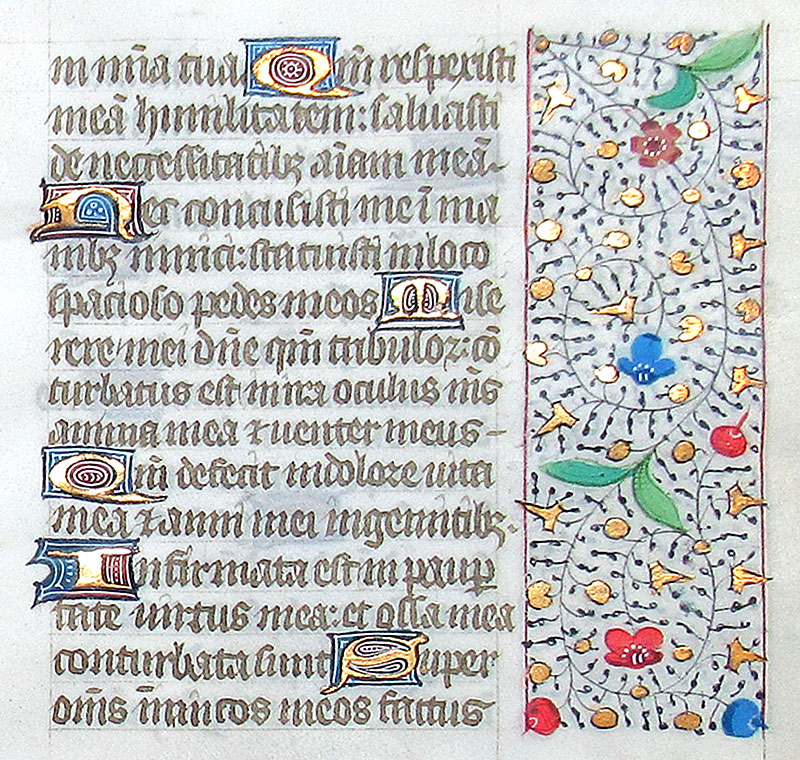 in mīa tua Qm̄ respexisti
meā humilitatem: saluasti
de necessitatibꝫ aīam meā
Nec conclusisti me ī ma
nibꝫ inimici: statuisti in loco
spacioso pedes meos Mise
rere mei dn̄e qm̄ tribulor: cō
turbatus est in ira oculus m̄s
anima mea ⁊ uenter meus
Qm̄ defecit in dolore uita
mea ⁊ anni mei in gemitibꝫ.
Infirmata est in pauꝑ
tate uirtus mea: et ossa mea
conturbata sunt Super
om̄s inimicos meos factus